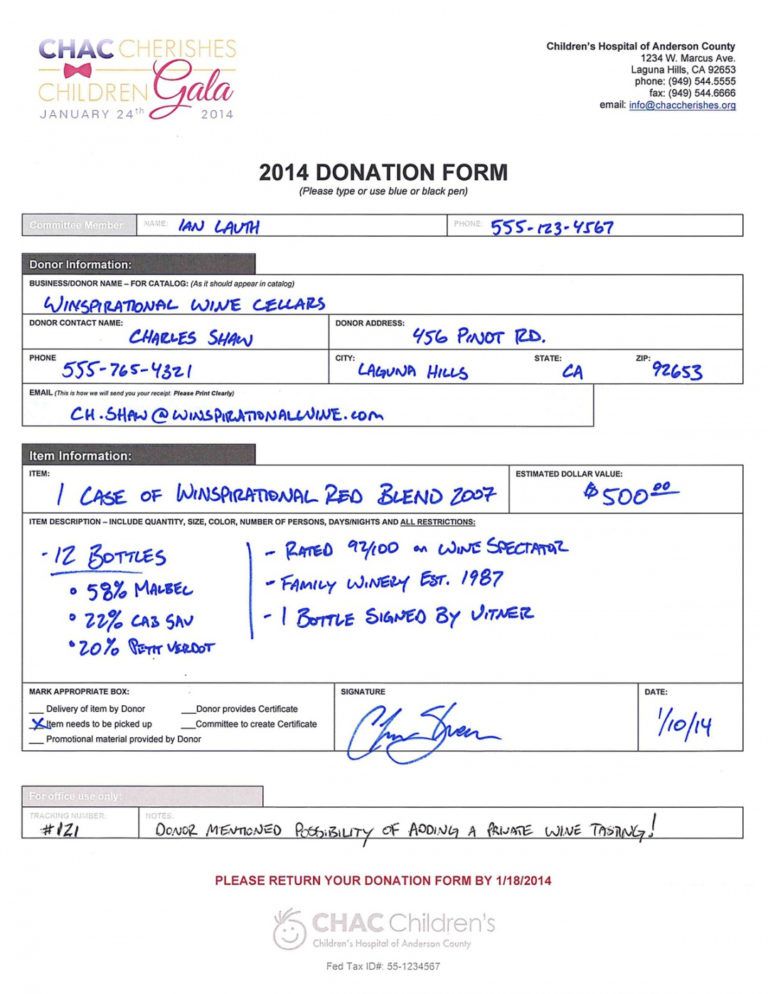 CHAC CHERISHES
CHILDREN Gala
JANUARY 24th 2014
Children's Hospital of Anderson County
1234 W. Marcus Ave.
Laguna Hills, CA 92653
phone: (949) 544.5555
fax: (949) 544.6666
email: info@chaccherishes.org
2014 DONATION FORM
(Please type or use blue or black pen)
Committee Member: NAME: IAN LAUTH PHONE: 555-123-4567
Donor Information:
BUSINESS/DONOR NAME – FOR CATALOG: (As it should appear in catalog)
WINSPIRATIONAL WINE CELLARS
DONOR CONTACT NAME: DONOR ADDRESS:
CHARLES SHAW 456 PINOT RD.
PHONE CITY: STATE: ZIP:
555-765-4321 LAGUNA HILLS CA 92653
EMAIL (This is how we will send you your receipt. Please Print Clearly)
CH.SHAW@WINSPIRATIONALWINE.COM
Item Information:
ITEM: ESTIMATED DOLLAR VALUE:
1 CASE OF WINSPIRATIONAL RED BLEND 2007 $500.00
ITEM DESCRIPTION – INCLUDE QUANTITY, SIZE, COLOR, NUMBER OF PERSONS, DAYS/NIGHTS AND ALL RESTRICTIONS:
- 12 BOTTLES
• 58% MALBEC
• 22% CAB SAV
• 20% PETIT VERDOT
- RATED 92/100 on WINE SPECTATOR
- FAMILY WINERY EST. 1987
- 1 BOTTLE SIGNED BY VITNER
MARK APPROPRIATE BOX: SIGNATURE DATE:
___ Delivery of item by Donor ___Donor provides Certificate
X Item needs to be picked up ___Committee to create Certificate
___ Promotional material provided by Donor
1/10/14
For office use only:
TRACKING NUMBER: NOTES:
#121 DONOR MENTIONED POSSIBILITY OF ADDING A PRIVATE WINE TASTING!
PLEASE RETURN YOUR DONATION FORM BY 1/18/2014
CHAC Children's
Children's Hospital of Anderson County
Fed Tax ID#: 55-1234567